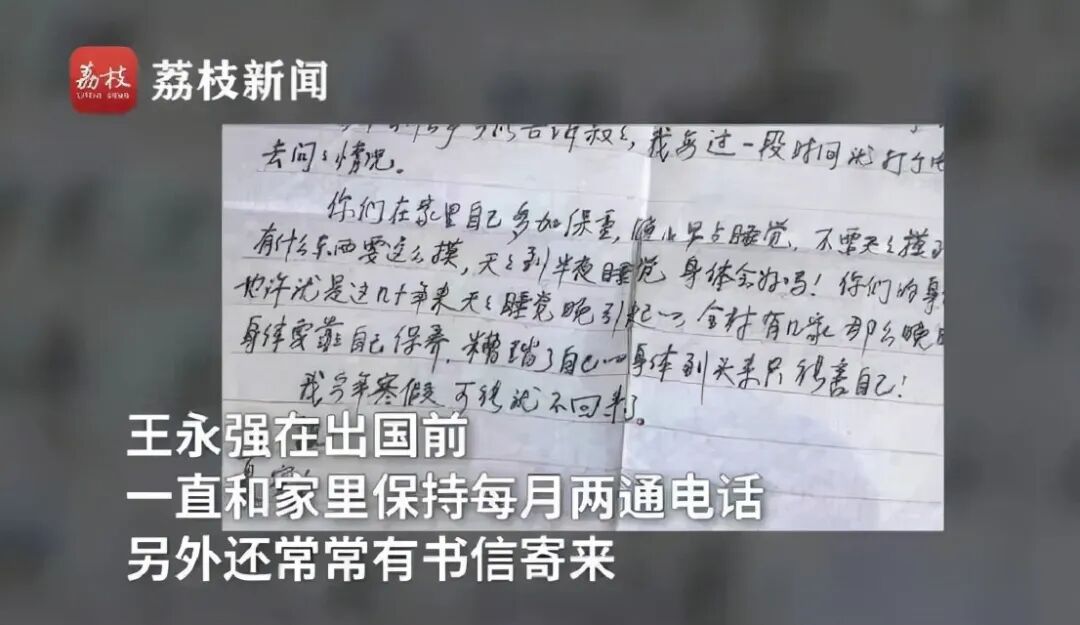 荔枝
LITCHI NEWS
荔枝新闻
我每过一段时间就打个电
去问问情况。
你们在家里自己多加保重，晚上早点睡觉，不要天天摸到
有什么东西要这么摸，天天到半夜睡觉，身体会好吗！你们的身
也许就是这几十年来天天睡觉晚引起的，全村有几家那么晚
身体要靠自己保养，糟蹋了自己的身体到头来只能害自己！
我今年寒假可能就不回来了。
王永强在出国前
一直和家里保持每月两通电话
另外还常常有书信寄来